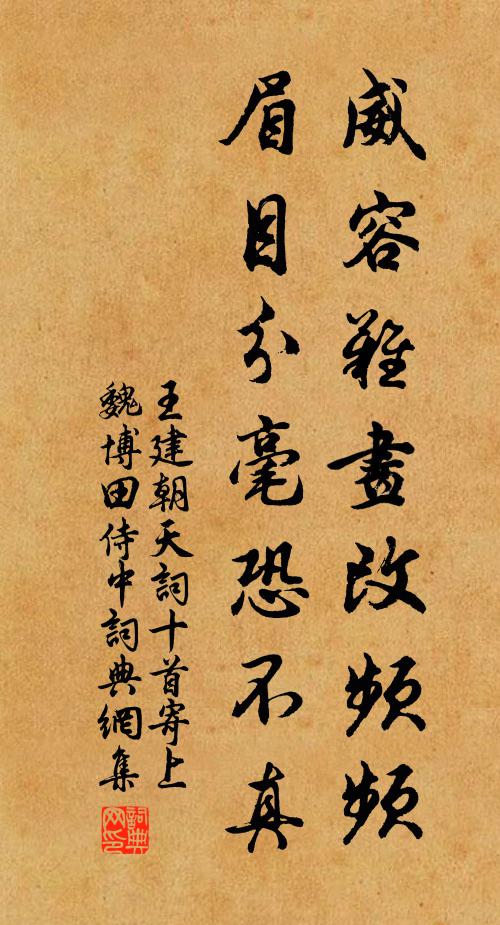 威容難畫改頻頻
眉目分毫恐不真
王建朝天詞十首寄上
魏博田侍中詞典網集
詞典
网印